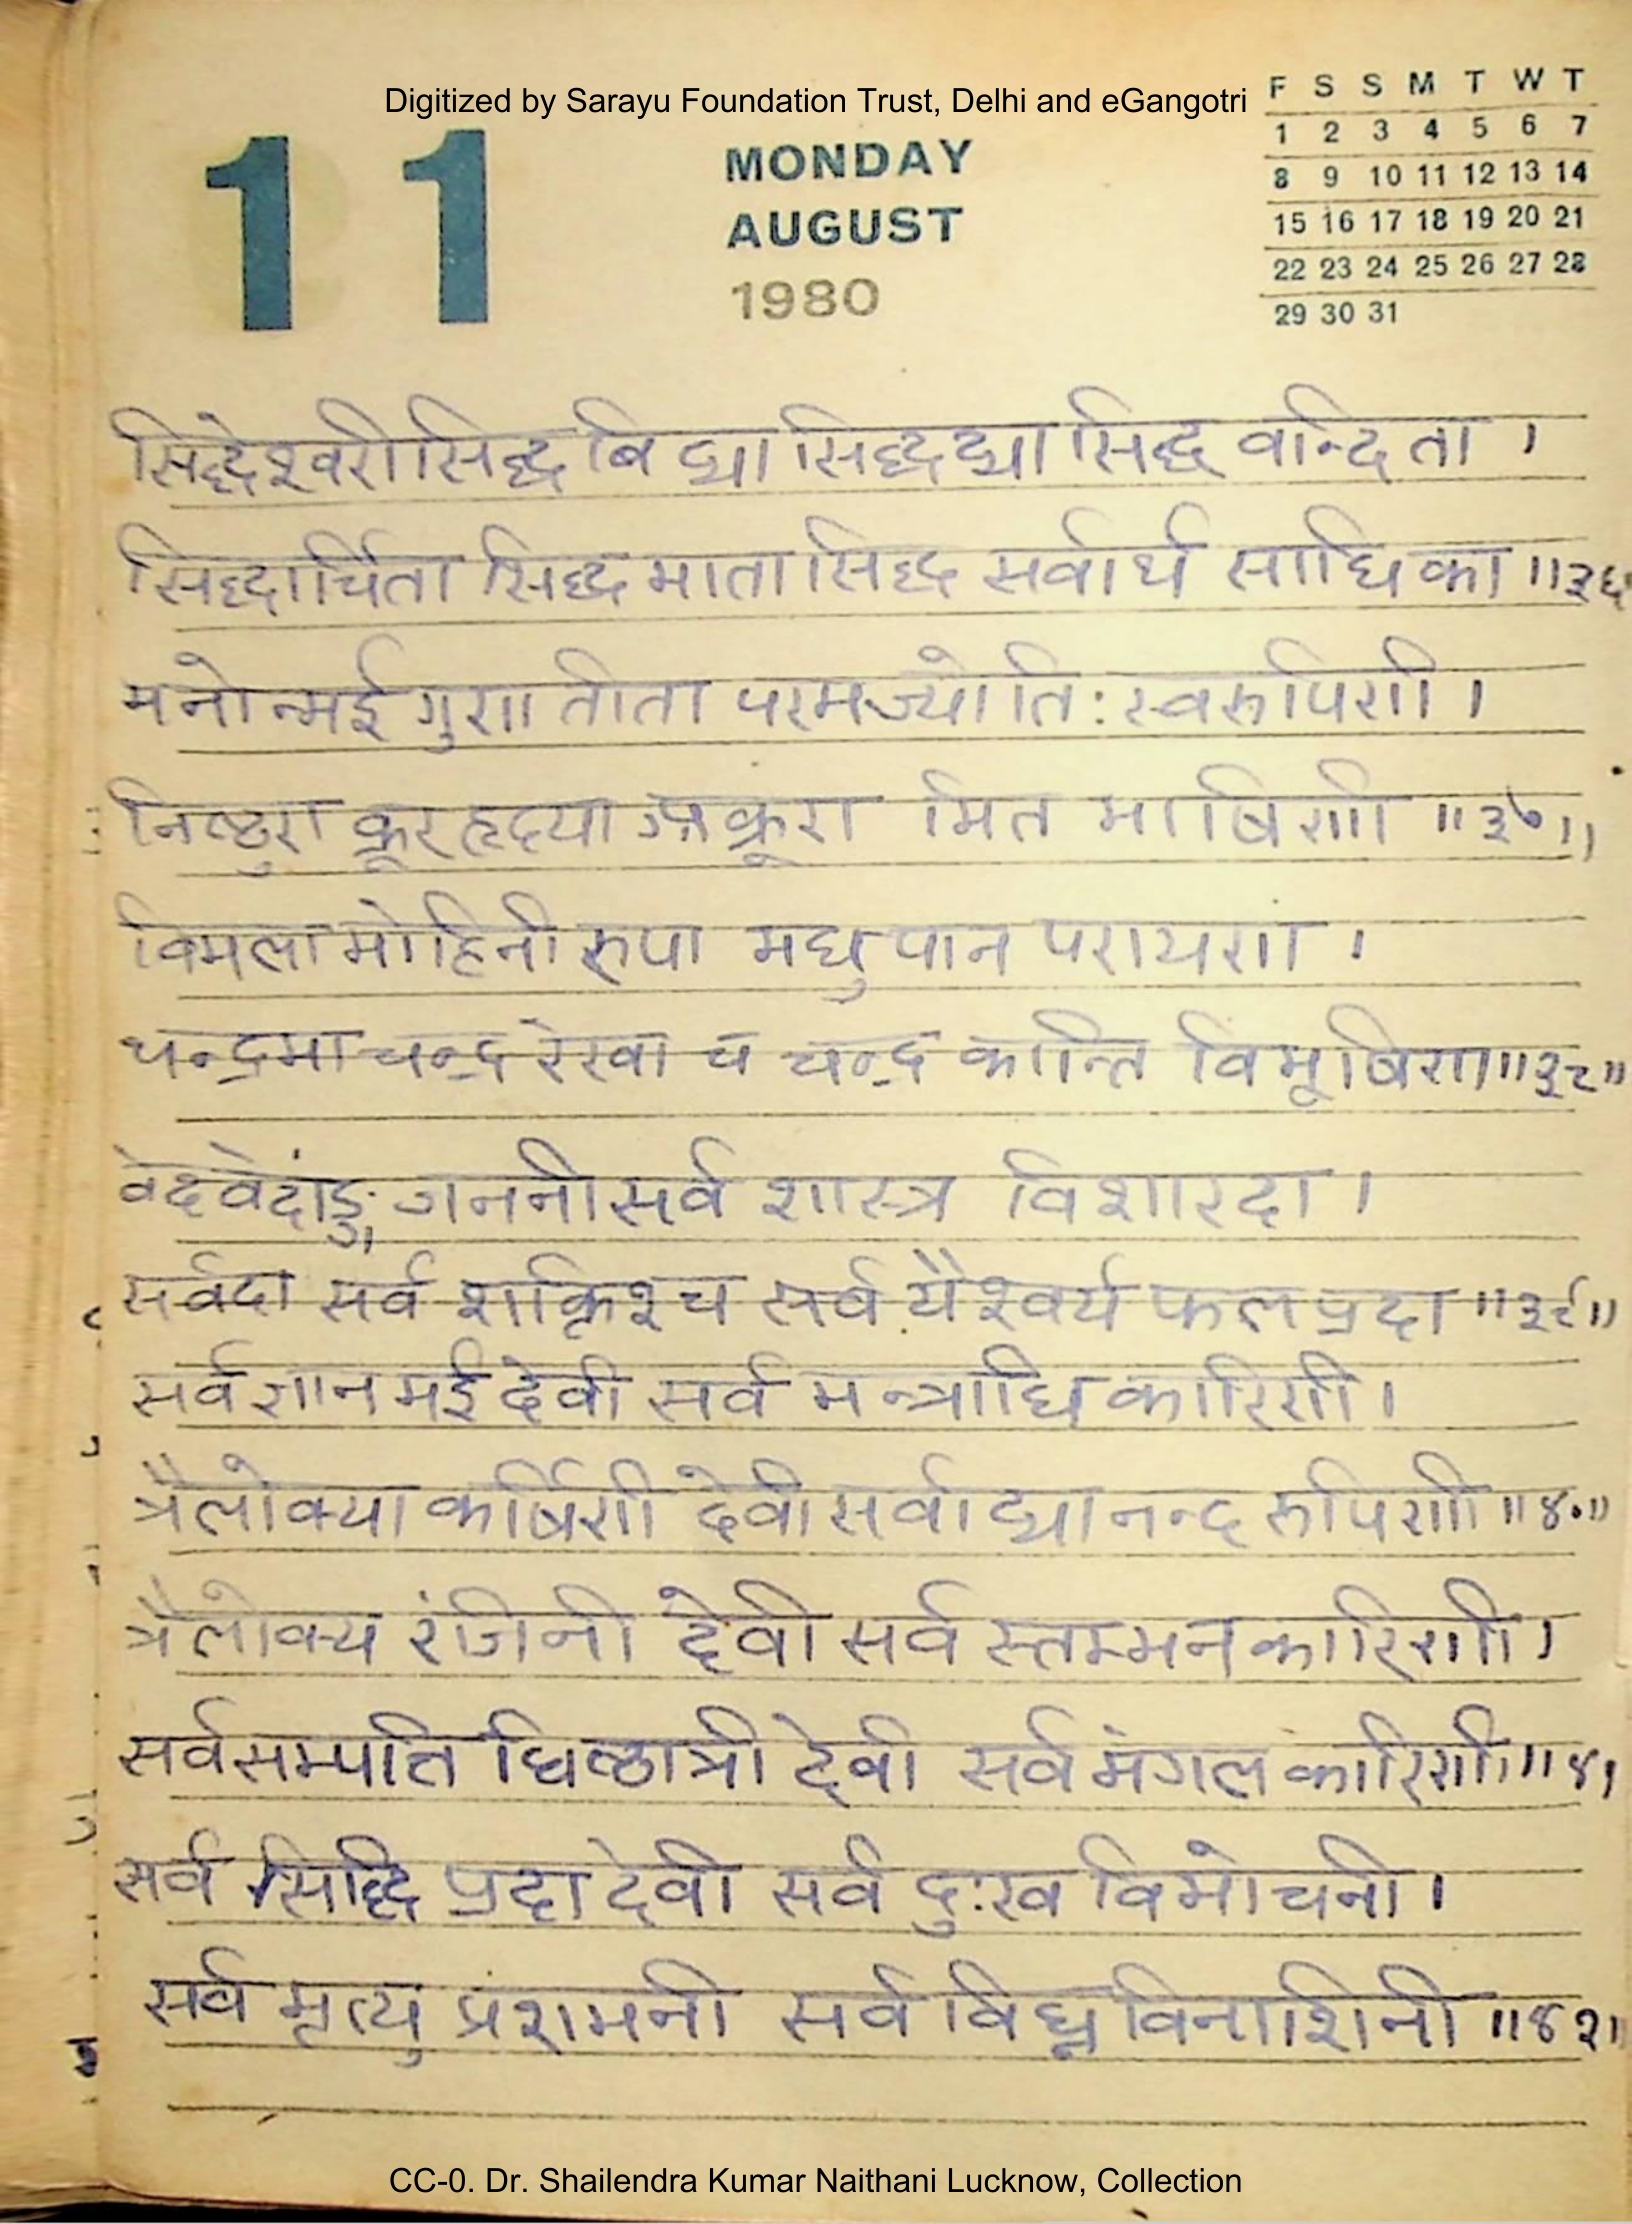 Digitized by Sarayu Foundation Trust, Delhi and eGangotri
F S S M T W T
1 2 3 4 5 6 7
8 9 10 11 12 13 14
15 16 17 18 19 20 21
22 23 24 25 26 27 28
29 30 31
11
MONDAY
AUGUST
1980
सिद्धेश्वरी सिद्ध बिद्या सिद्धद्या सिद्ध वन्दिता ।
सिद्धार्चिता सिद्ध माता सिद्ध सर्वार्थ साधिका ॥३६
मनोन्मई गुणातीता परमज्योतिः स्वरूपिणी ।
निष्ठुरा क्रूर हृदया अक्रूरा मित भाषिणी ॥३७॥
विमला मोहिनी रुपा मधुपान परायणा ।
चन्द्रमा चन्द्र रेखा च चन्द्र कान्ति विभूषिणा ॥३८॥
वेदवेदांङ्ग गननी सर्व शास्त्र विशारदा ।
सर्वदा सर्व शक्तिश्च सर्व यैश्वर्य फल प्रदा ॥३९॥
सर्व ज्ञान मई देवी सर्व मन्त्राधि कारिणी ।
त्रैलोक्या कर्षिणी देवी सर्वाद्यानन्द रूपिणी ॥४०॥
त्रैलोक्य रंजिनी देवी सर्व स्तम्भन कारिणी ।
सर्व सम्पति धिष्ठात्री देवी सर्व मंगल कारिणी ॥४१
सर्व सिद्धि प्रदा देवी सर्व दुःख विमोचनी ।
सर्व मृत्यु प्रशमनी सर्व विघ्न विनाशिनी ॥४२॥
CC-0. Dr. Shailendra Kumar Naithani Lucknow, Collection